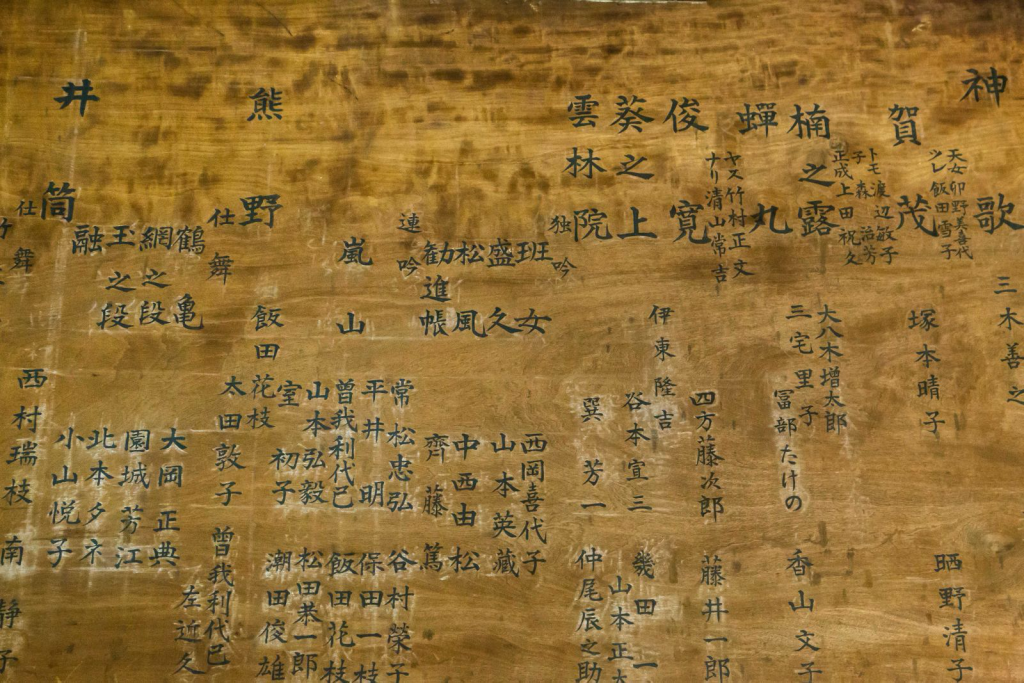 神歌 三木善之
天女 卯野美喜代
ツレ 飯田雪子
賀茂 塚本晴子 晒野清子
トモ 渡辺敏子
子 森 治芳
正成 上田祝久
大八木増太郎
楠之露 三宅里子 香山文子
冨部たけの
蟬丸
ヤス 竹村正文
ナリ 清山常吉
俊寛 四方藤次郎 藤井一郎
伊東隆吉
葵之上 谷本宣三 幾田一
山本正
雲林院 巽芳一 仲尾辰之助
独吟
班女 西岡喜代子
盛久 山本英藏
松風 中西由松
勧進帳 齊藤篤
連吟
常松忠弘 谷村榮子
嵐山 平井明 保田一枝
曽我利代巳 飯田花枝
山本弘毅 松田恭一郎
室初子 潮田俊雄
熊野 飯田花枝
仕舞 太田敦子 曽我利代巳
左近久
鶴亀 大岡正典
網之段 園城芳江
玉之段 北本夕ネ
融 小山悦子
井筒
仕舞 西村瑞枝 南静子